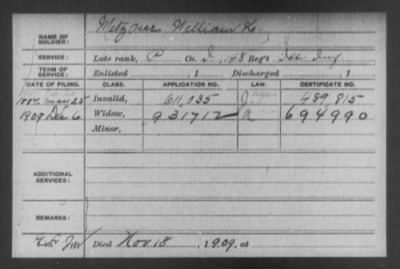 NAME OF SOLDIER: Metzger William H.
SERVICE: Late rank, P Co. I, 148 Reg't Inf.
TERM OF SERVICE: Enlisted , 1 Discharged , 1
DATE OF FILING. CLASS. APPLICATION NO. LAW. CERTIFICATE NO.
1887 May 25 Invalid, 611,035 489,815
1909 Dec 6 Widow, 931712 a 694990
Minor,
ADDITIONAL SERVICES:
REMARKS:
Died Nov 18, 1909, at